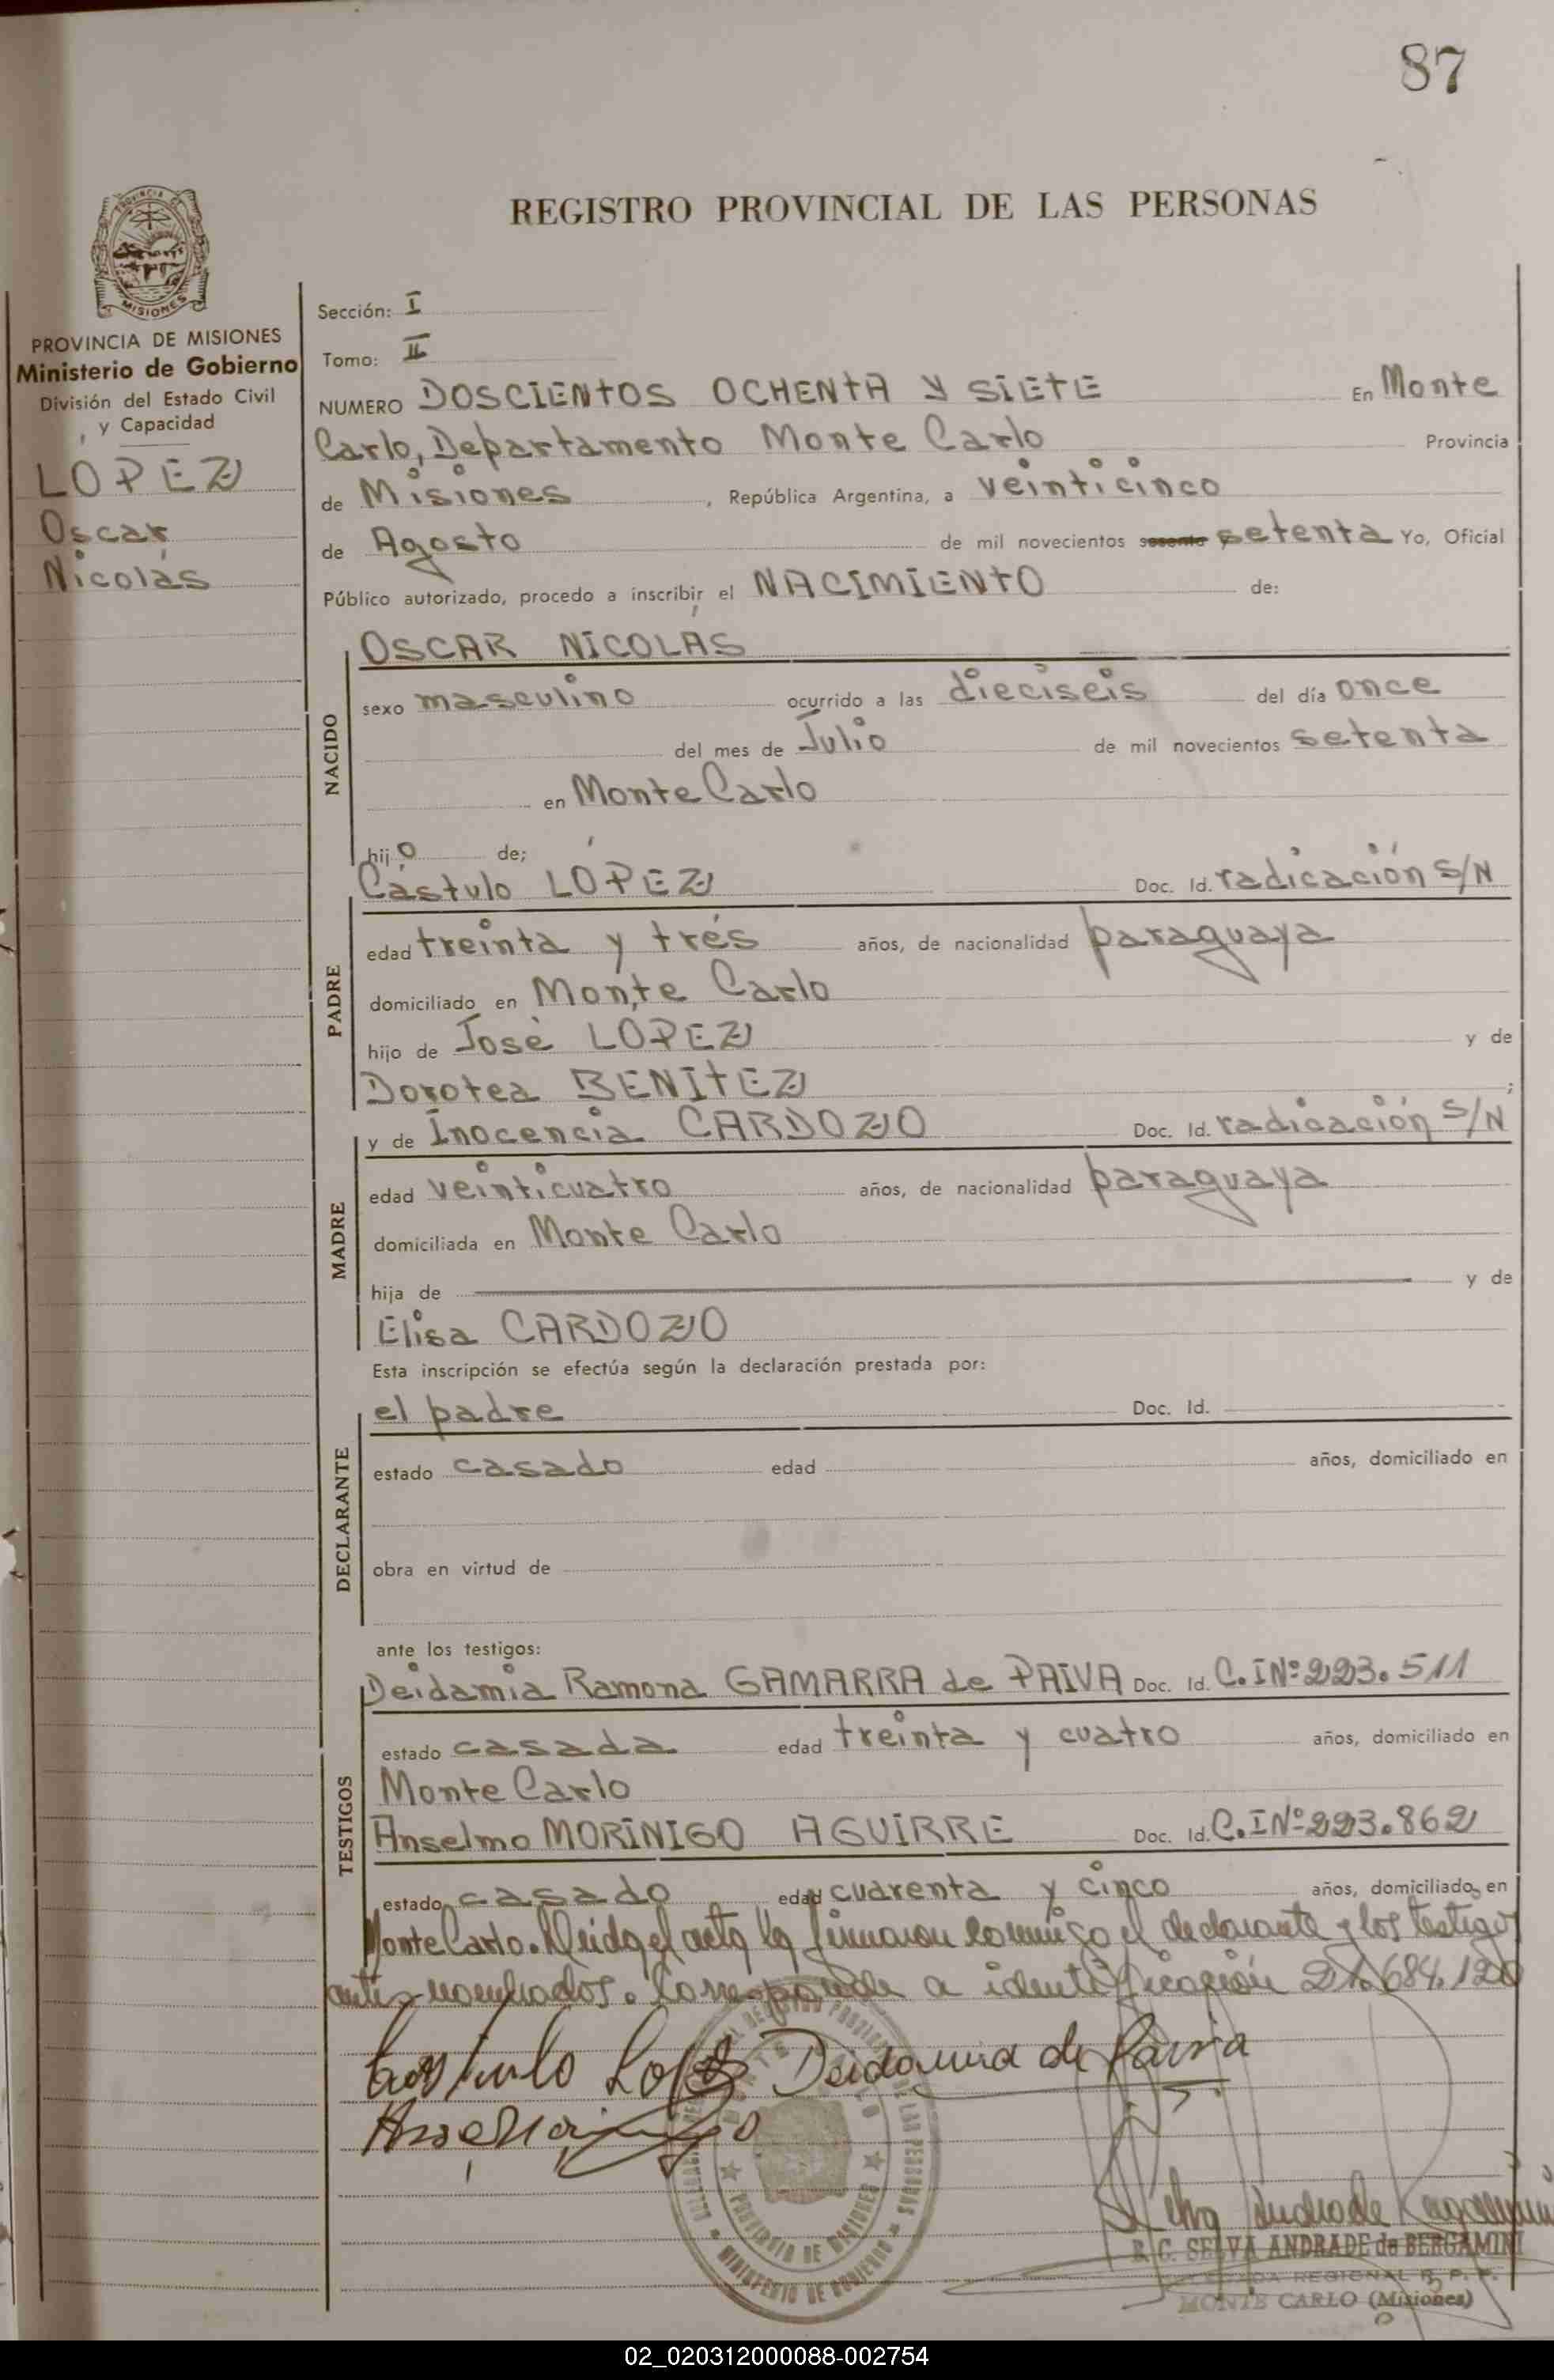 87
REGISTRO PROVINCIAL DE LAS PERSONAS
PROVINCIA
MISIONES
PROVINCIA DE MISIONES
Ministerio de Gobierno
División del Estado Civil
y Capacidad
LOPEZ
Oscar
Nicolás
Sección: I
Tomo: II
NUMERO DOSCIENTOS OCHENTA Y SIETE En Monte
Carlo, Departamento Monte Carlo Provincia
de Misiones , República Argentina, a veinticinco
de Agosto de mil novecientos sesenta y setenta Yo, Oficial
Público autorizado, procedo a inscribir el NACIMIENTO de:
NACIDO
OSCAR NICOLÁS
sexo masculino ocurrido a las dieciseis del día once
del mes de Julio de mil novecientos setenta
en Monte Carlo
hijo de;
PADRE
Cástulo LÓPEZ Doc. Id. radicación S/N
edad treinta y trés años, de nacionalidad paraguaya
domiciliado en Monte Carlo
hijo de José LOPEZ y de
Dorotea BENITEZ ;
MADRE
y de Inocencia CARDOZO Doc. Id. radicación S/N
edad veinticuatro años, de nacionalidad paraguaya
domiciliada en Monte Carlo
hija de y de
Elisa CARDOZO
Esta inscripción se efectúa según la declaración prestada por:
DECLARANTE
el padre Doc. Id.
estado casado edad años, domiciliado en
obra en virtud de
ante los testigos:
TESTIGOS
Deidamia Ramona GAMARRA de PAIVA Doc. Id. C.INº 223.511
estado casada edad treinta y cuatro años, domiciliado en
Monte Carlo
Anselmo MORÍNIGO AGUIRRE Doc. Id. C.INº 223.862
estado casado edad cuarenta y cinco años, domiciliado en
Monte Carlo. Leida el acta la firmaron conmigo el declarante y los testigos
antes nombrados. Corresponde a identificación 21.684.120
Castulo Lopez Deidamia de Paiva
PROVINCIA DE MISIONES
MINISTERIO DE GOBIERNO
Selva Andrade Bergamini
R. C. SELVA ANDRADE de BERGAMINI
REGIONAL R. P. P.
MONTE CARLO (Misiones)
02_020312000088-002754